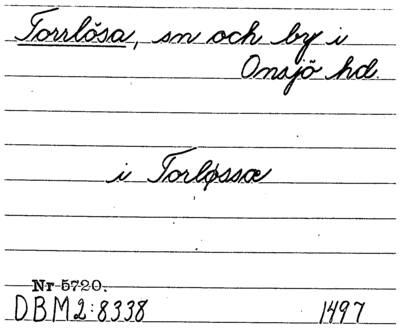 Torrlösa, sn och by i
Onsjö hd.
i Torløssæ
Nr 5720.
DBM2:8338 1497